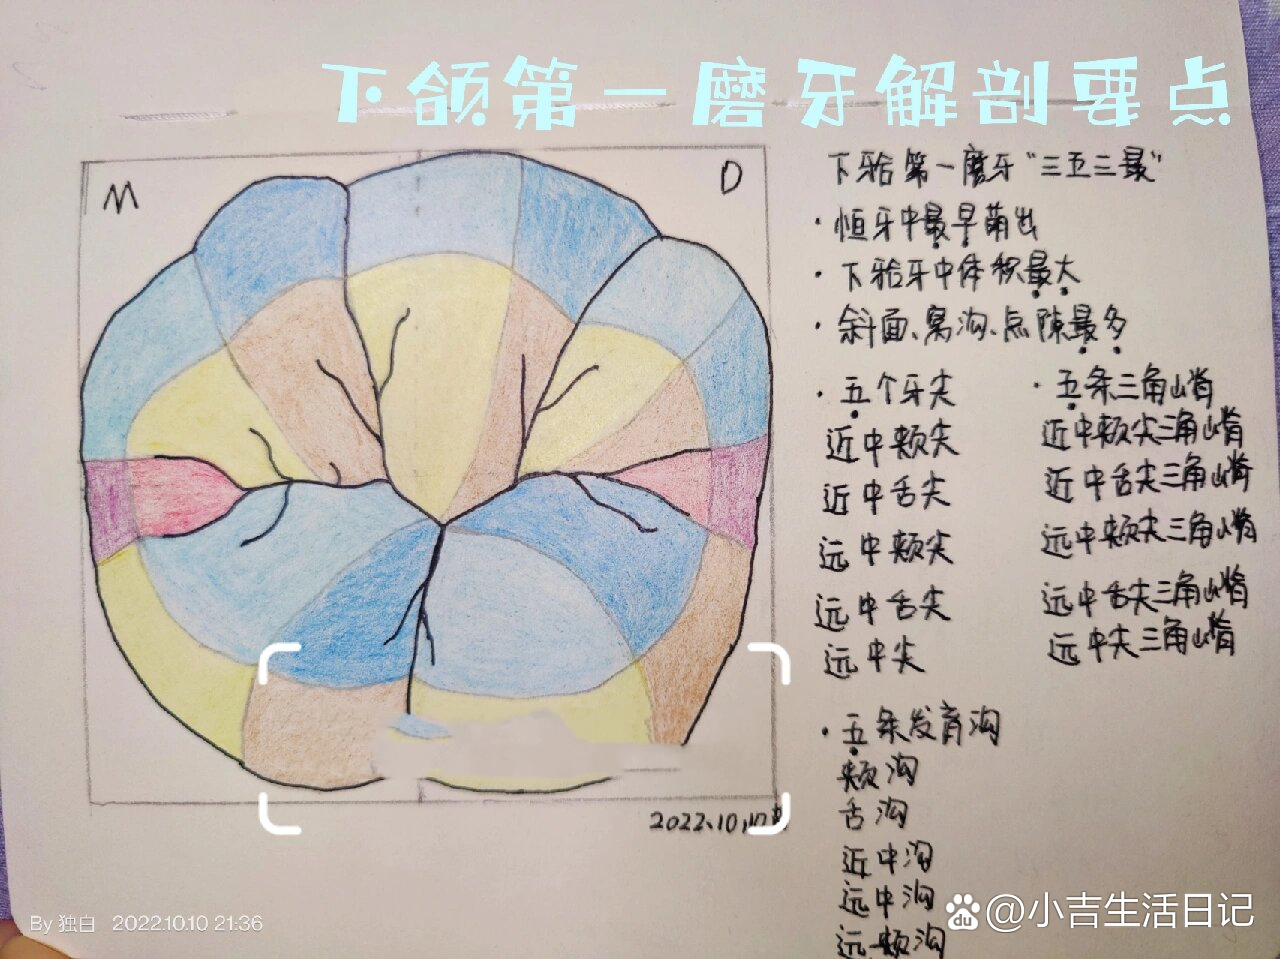 下颌第一磨牙解剖要点
M
D
下颌第一磨牙“三五三最”
·恒牙中最早萌出
·下颌牙中体积最大
·斜面、窝沟、点隙最多
·五个牙尖
近中颊尖
近中舌尖
远中颊尖
远中舌尖
远中尖
·五条三角嵴
近中颊尖三角嵴
近中舌尖三角嵴
远中颊尖三角嵴
远中舌尖三角嵴
远中尖三角嵴
·五条发育沟
颊沟
舌沟
近中沟
远中沟
远颊沟
2022.10.10
By 独白 2022.10.10 21:36
du @小吉生活日记